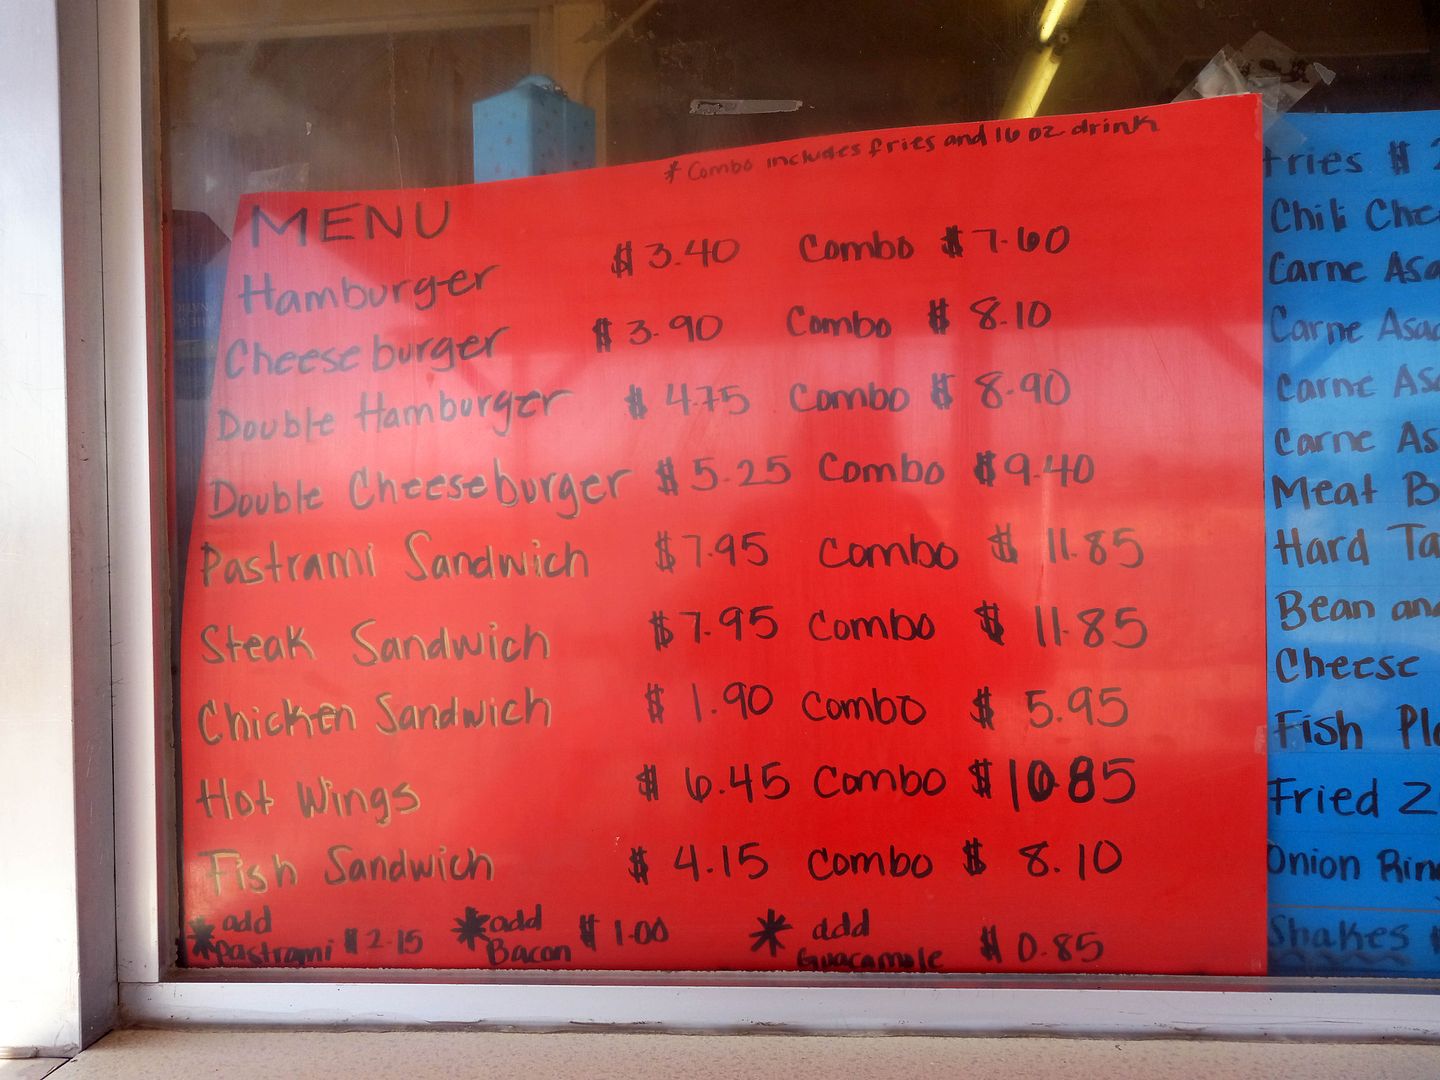 * Combo includes fries and 16 oz drink
MENU
Hamburger $3.40 Combo $7.60
Cheeseburger $3.90 Combo $8.10
Double Hamburger $4.75 Combo $8.90
Double Cheeseburger $5.25 Combo $9.40
Pastrami Sandwich $7.95 Combo $11.85
Steak Sandwich $7.95 Combo $11.85
Chicken Sandwich $1.90 Combo $5.95
Hot Wings $6.45 Combo $10.85
Fish Sandwich $4.15 Combo $8.10
* add Pastrami $2.15 * add Bacon $1.00 * add Guacamole $0.85
Fries $
Chili
Carne
Carne
Carne
Carne
Meat
Hard
Bean
Cheese
Fish
Fried
Onion
Shakes